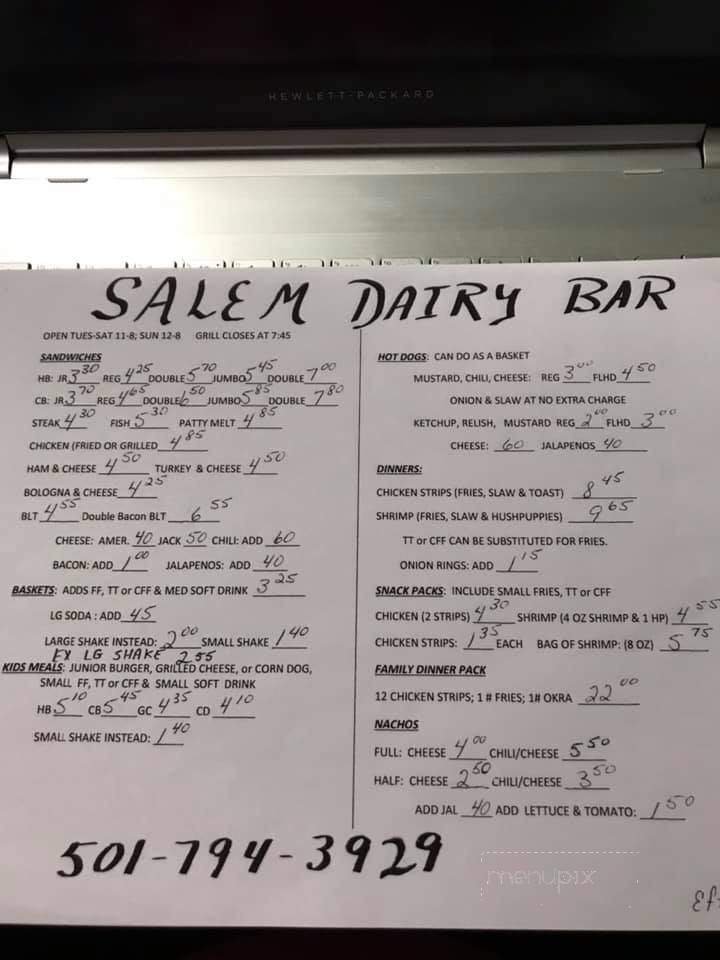 HEWLETT-PACKARD
SALEM DAIRY BAR
OPEN TUES-SAT 11-8; SUN 12-8 GRILL CLOSES AT 7:45
SANDWICHES
HB: JR 3 30 REG 4 25 DOUBLE 5 70 JUMBO 5 45 DOUBLE 7 00
CB: JR 3 70 REG 4 65 DOUBLE 6 50 JUMBO 5 85 DOUBLE 7 80
STEAK 4 30 FISH 5 30 PATTY MELT 4 85
CHICKEN (FRIED OR GRILLED 4 85
HAM & CHEESE 4 50 TURKEY & CHEESE 4 50
BOLOGNA & CHEESE 4 25
BLT 4 55 Double Bacon BLT 6 55
CHEESE: AMER. 40 JACK 50 CHILI: ADD 60
BACON: ADD 1 00 JALAPENOS: ADD 40
BASKETS: ADDS FF, TT or CFF & MED SOFT DRINK 3 25
LG SODA : ADD 45
LARGE SHAKE INSTEAD: 2 00 SMALL SHAKE 1 40
EX LG SHAKE 2 55
KIDS MEALS: JUNIOR BURGER, GRILLED CHEESE, or CORN DOG,
SMALL FF, TT or CFF & SMALL SOFT DRINK
HB 5 10 CB 5 45 GC 4 35 CD 4 10
SMALL SHAKE INSTEAD: 1 40
HOT DOGS: CAN DO AS A BASKET
MUSTARD, CHILI, CHEESE: REG 3 00 FLHD 4 50
ONION & SLAW AT NO EXTRA CHARGE
KETCHUP, RELISH, MUSTARD REG 2 00 FLHD 3 00
CHEESE: 60 JALAPENOS 40
DINNERS:
CHICKEN STRIPS (FRIES, SLAW & TOAST) 8 45
SHRIMP (FRIES, SLAW & HUSHPUPPIES) 9 65
TT or CFF CAN BE SUBSTITUTED FOR FRIES.
ONION RINGS: ADD 1 15
SNACK PACKS: INCLUDE SMALL FRIES, TT or CFF
CHICKEN (2 STRIPS) 4 30 SHRIMP (4 OZ SHRIMP & 1 HP) 4 55
CHICKEN STRIPS: 1 35 EACH BAG OF SHRIMP: (8 OZ) 5 75
FAMILY DINNER PACK
12 CHICKEN STRIPS; 1 # FRIES; 1# OKRA 22 00
NACHOS
FULL: CHEESE 4 00 CHILI/CHEESE 5 50
HALF: CHEESE 2 50 CHILI/CHEESE 3 50
ADD JAL 40 ADD LETTUCE & TOMATO: 1 50
501-794-3929
menupix